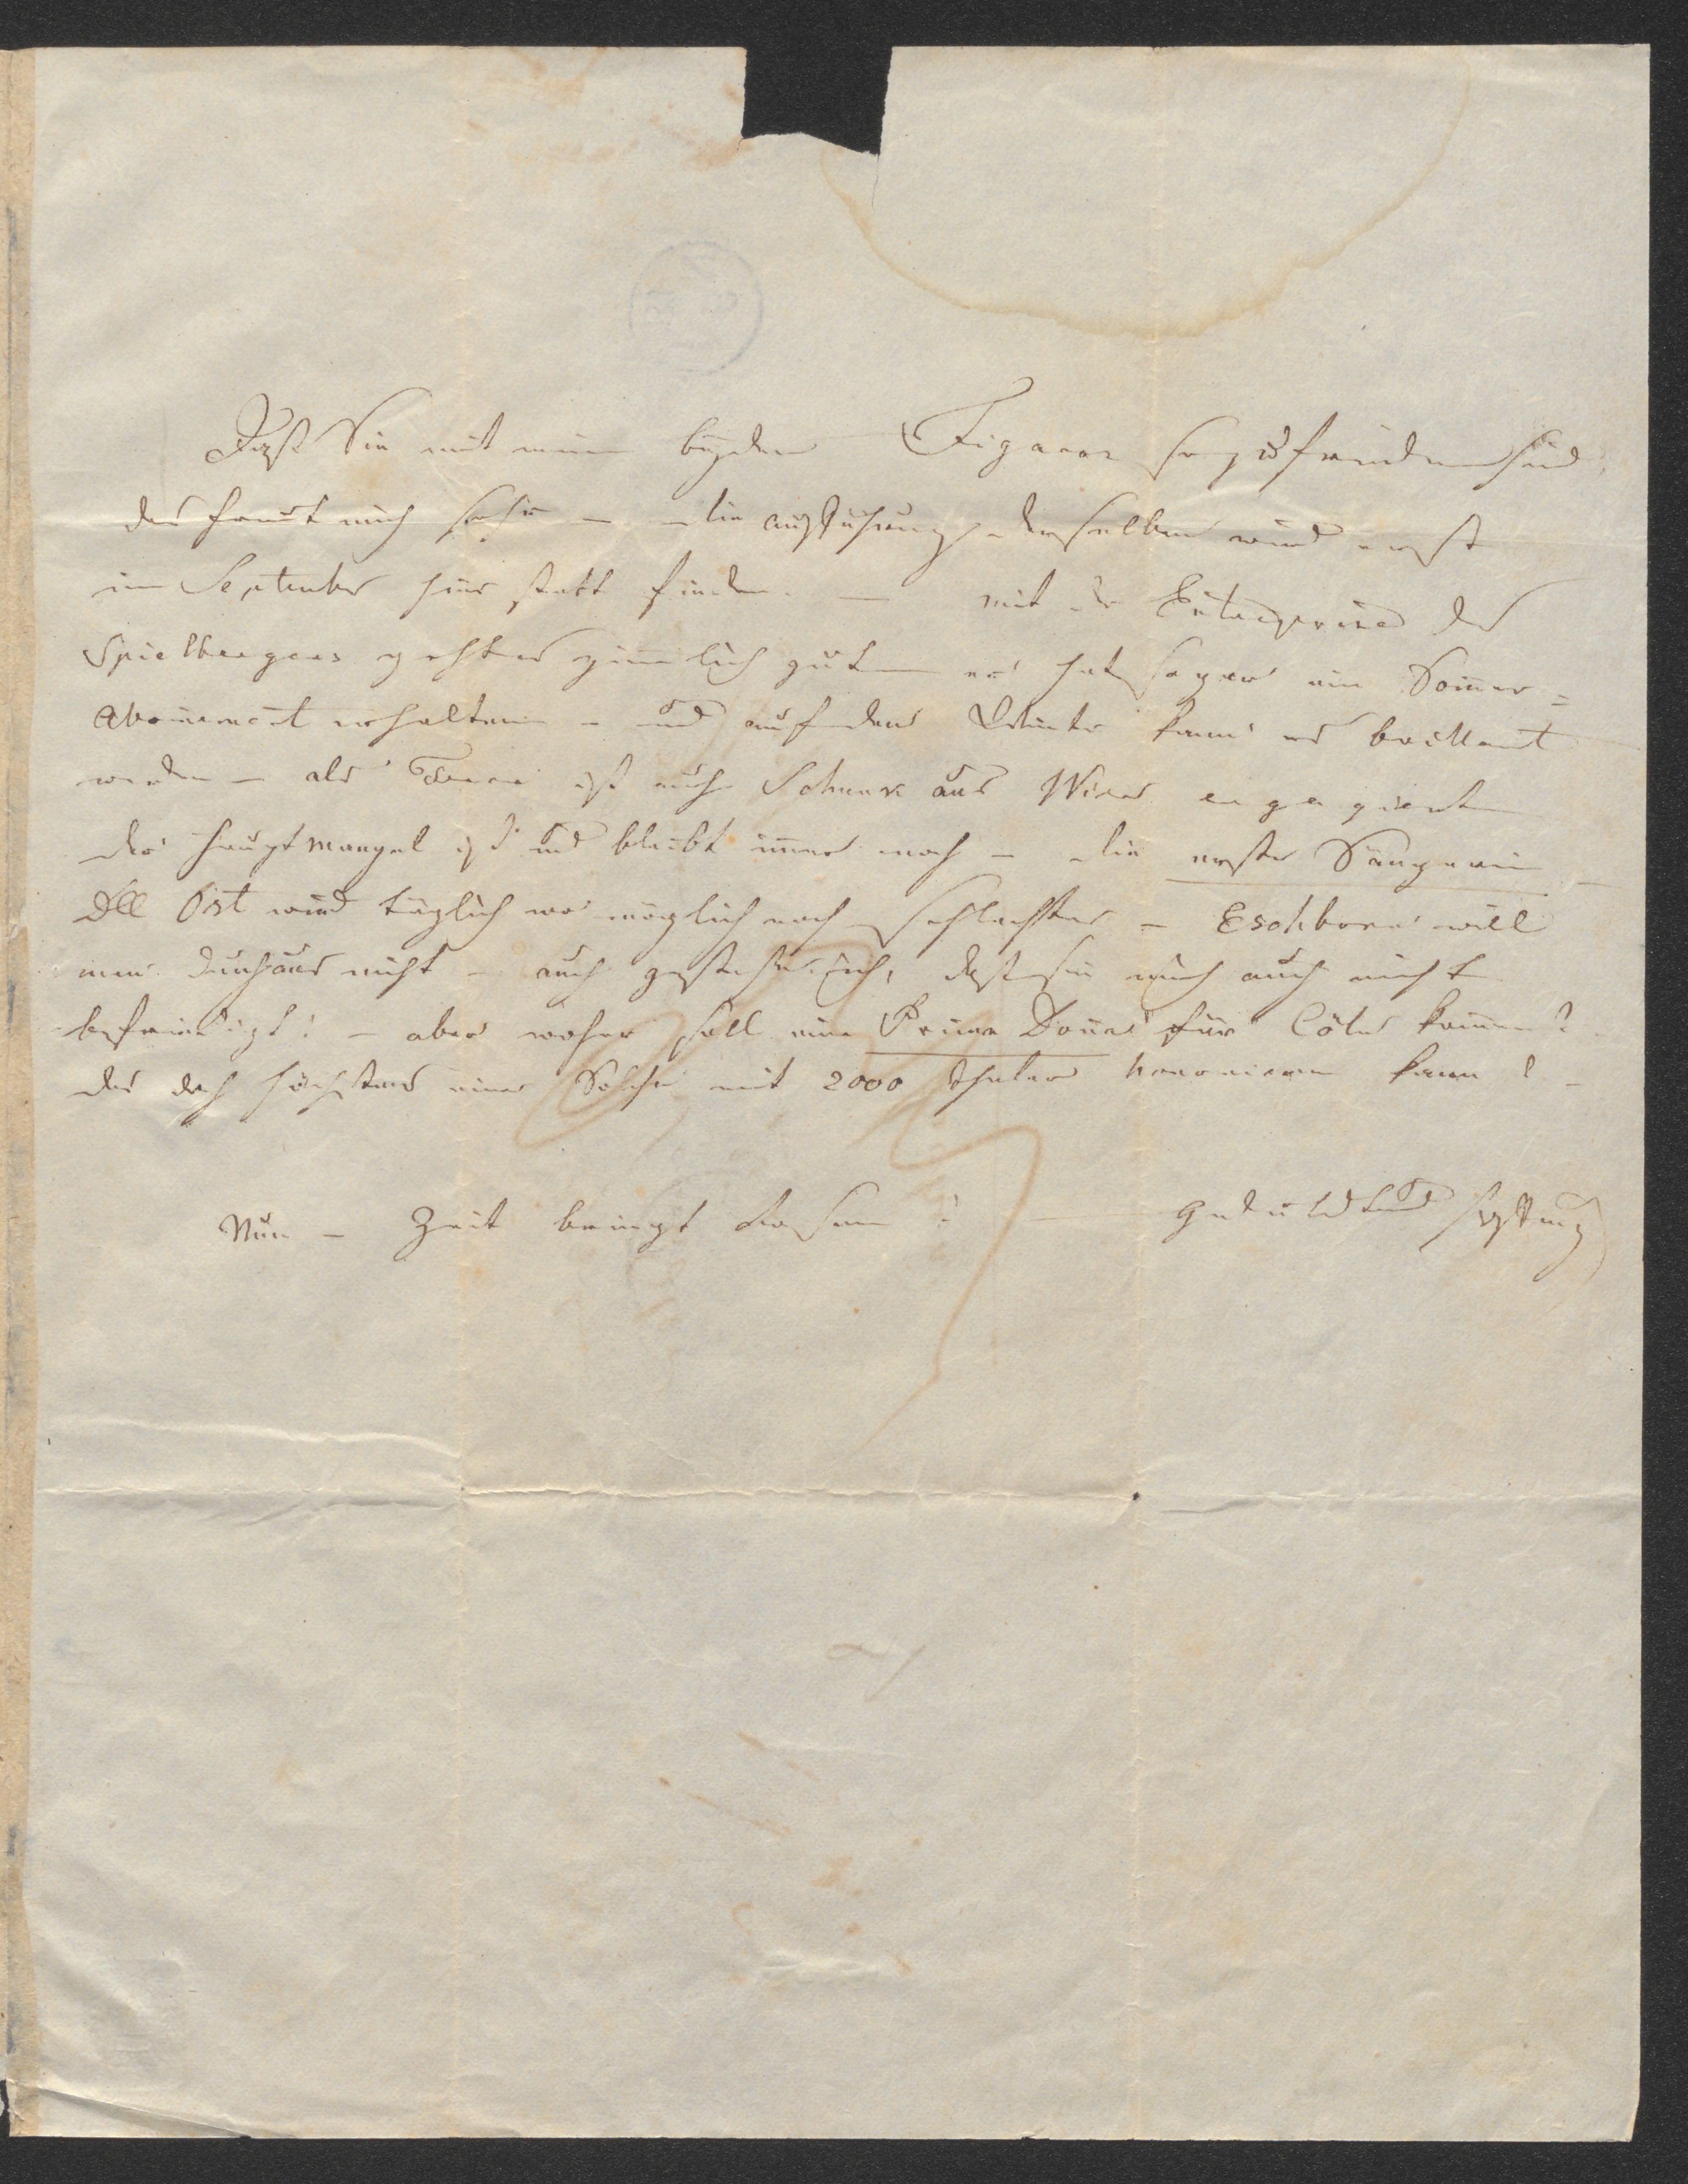 Daß Sie mit meinen beyden Figaros so zufrieden sind,
das freut mich sehr – die Aufführung derselben wird erst
im September hier statt finden. — mit der Enterprise des
Spielbergers geht es ziemlich gut – er hat sogar ein Som̄er=
Abon̄ement erhalten – und auf den Winter kan̄ es brillant
werden – als Tenor ist auch Schunk aus Wien engagiert
der Hauptmangel ist und bleibt im̄er noch – die erste Sängerin –
Dll Ost wird täglich wo möglich noch schlechter – Eschborn will
man durchaus nicht – auch gestehe ich, daß sie mich auch nicht
befriedigt! – aber woher soll eine Prima Don̄a für Cöln kom̄en?
das doch höchstens eine Solche mit 2000 Thaler honoriren kann! –
Nun – Zeit bringt Rosen! — Geduld und Hoffnung